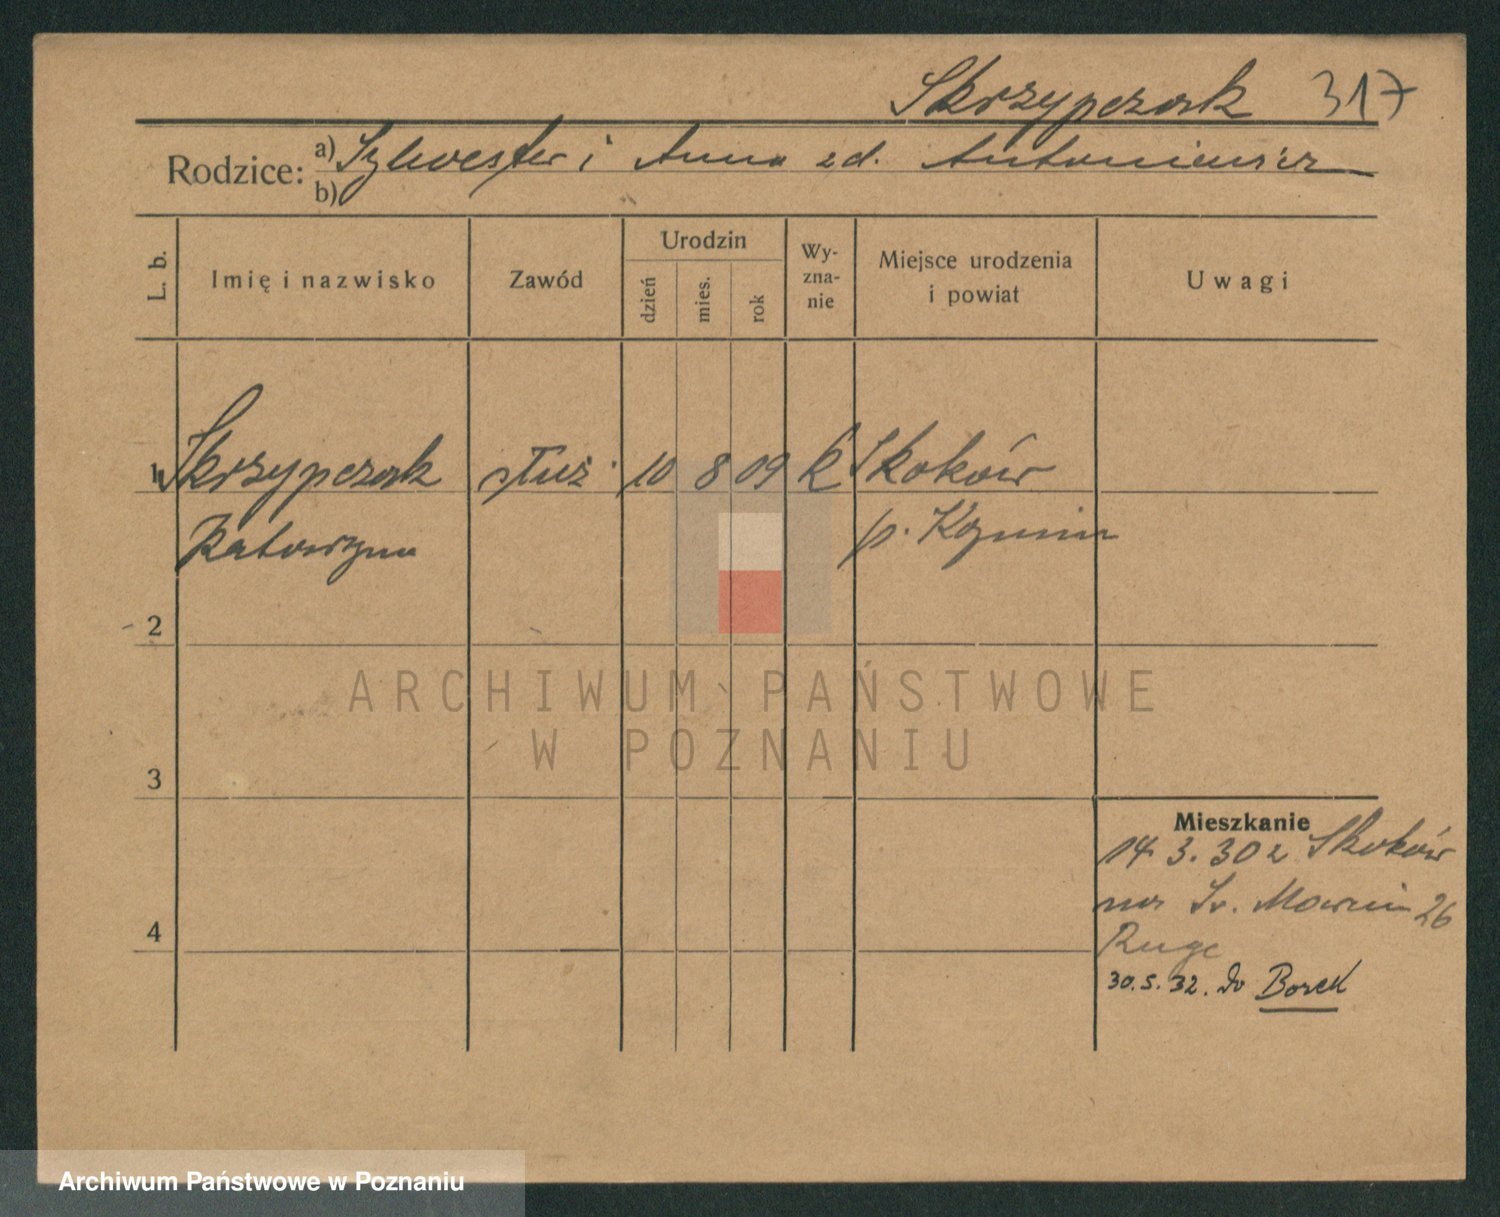 Skrzypczak 317
Rodzice: a) Sylwester i Anna zd. Antoniewicz
b)
L. b. Imię i nazwisko Zawód Urodzin dzień mies. rok Wy-zna-nie Miejsce urodzenia i powiat Uwagi
1 Skrzypczak służ. 10 8 09 k Skoków
Katarzyna p. Koźmin
2
3
4
Mieszkanie
14 3. 30 z Skoków
na Św. Marcin 26
Ruge
30.5.32. do Borek
ARCHIWUM PAŃSTWOWE
W POZNANIU
Archiwum Państwowe w Poznaniu